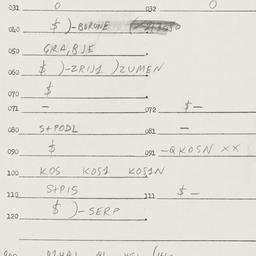 031 0 032 0
040 $ )-BORONE
050 GRA,BJE
060 $ )-ZRIJI )ZUMEN
070 $
071 - 072 $-
080 S+PODL 081 -
090 $ 091 -QKOSN XX
100 KOS KOSI KOSIN
110 S+PIS 111 $-
120 $ )-SERP